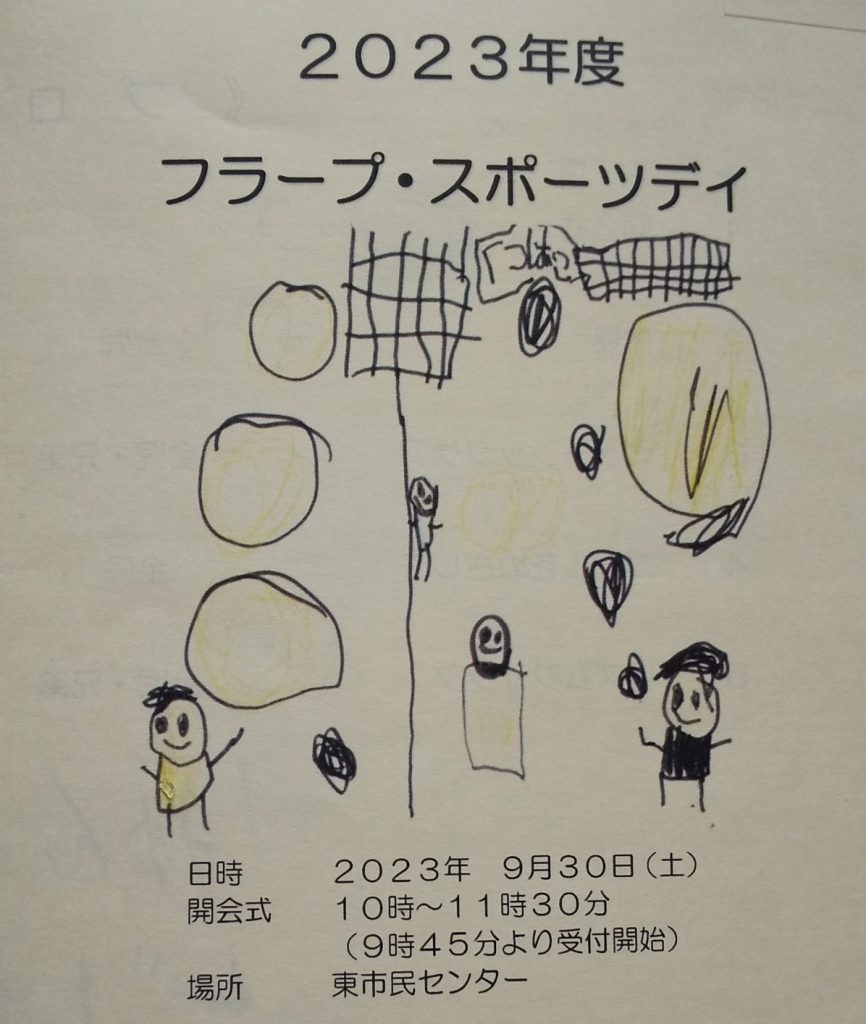 2023年度
フラープ・スポーツディ
日時 2023年 9月30日(土)
開会式 10時~11時30分
(9時45分より受付開始)
場所 東市民センター